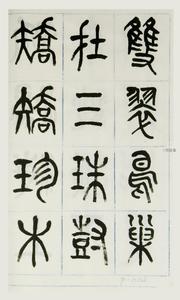 雙翠鳥巢
在三珠樹
矯矯珍木